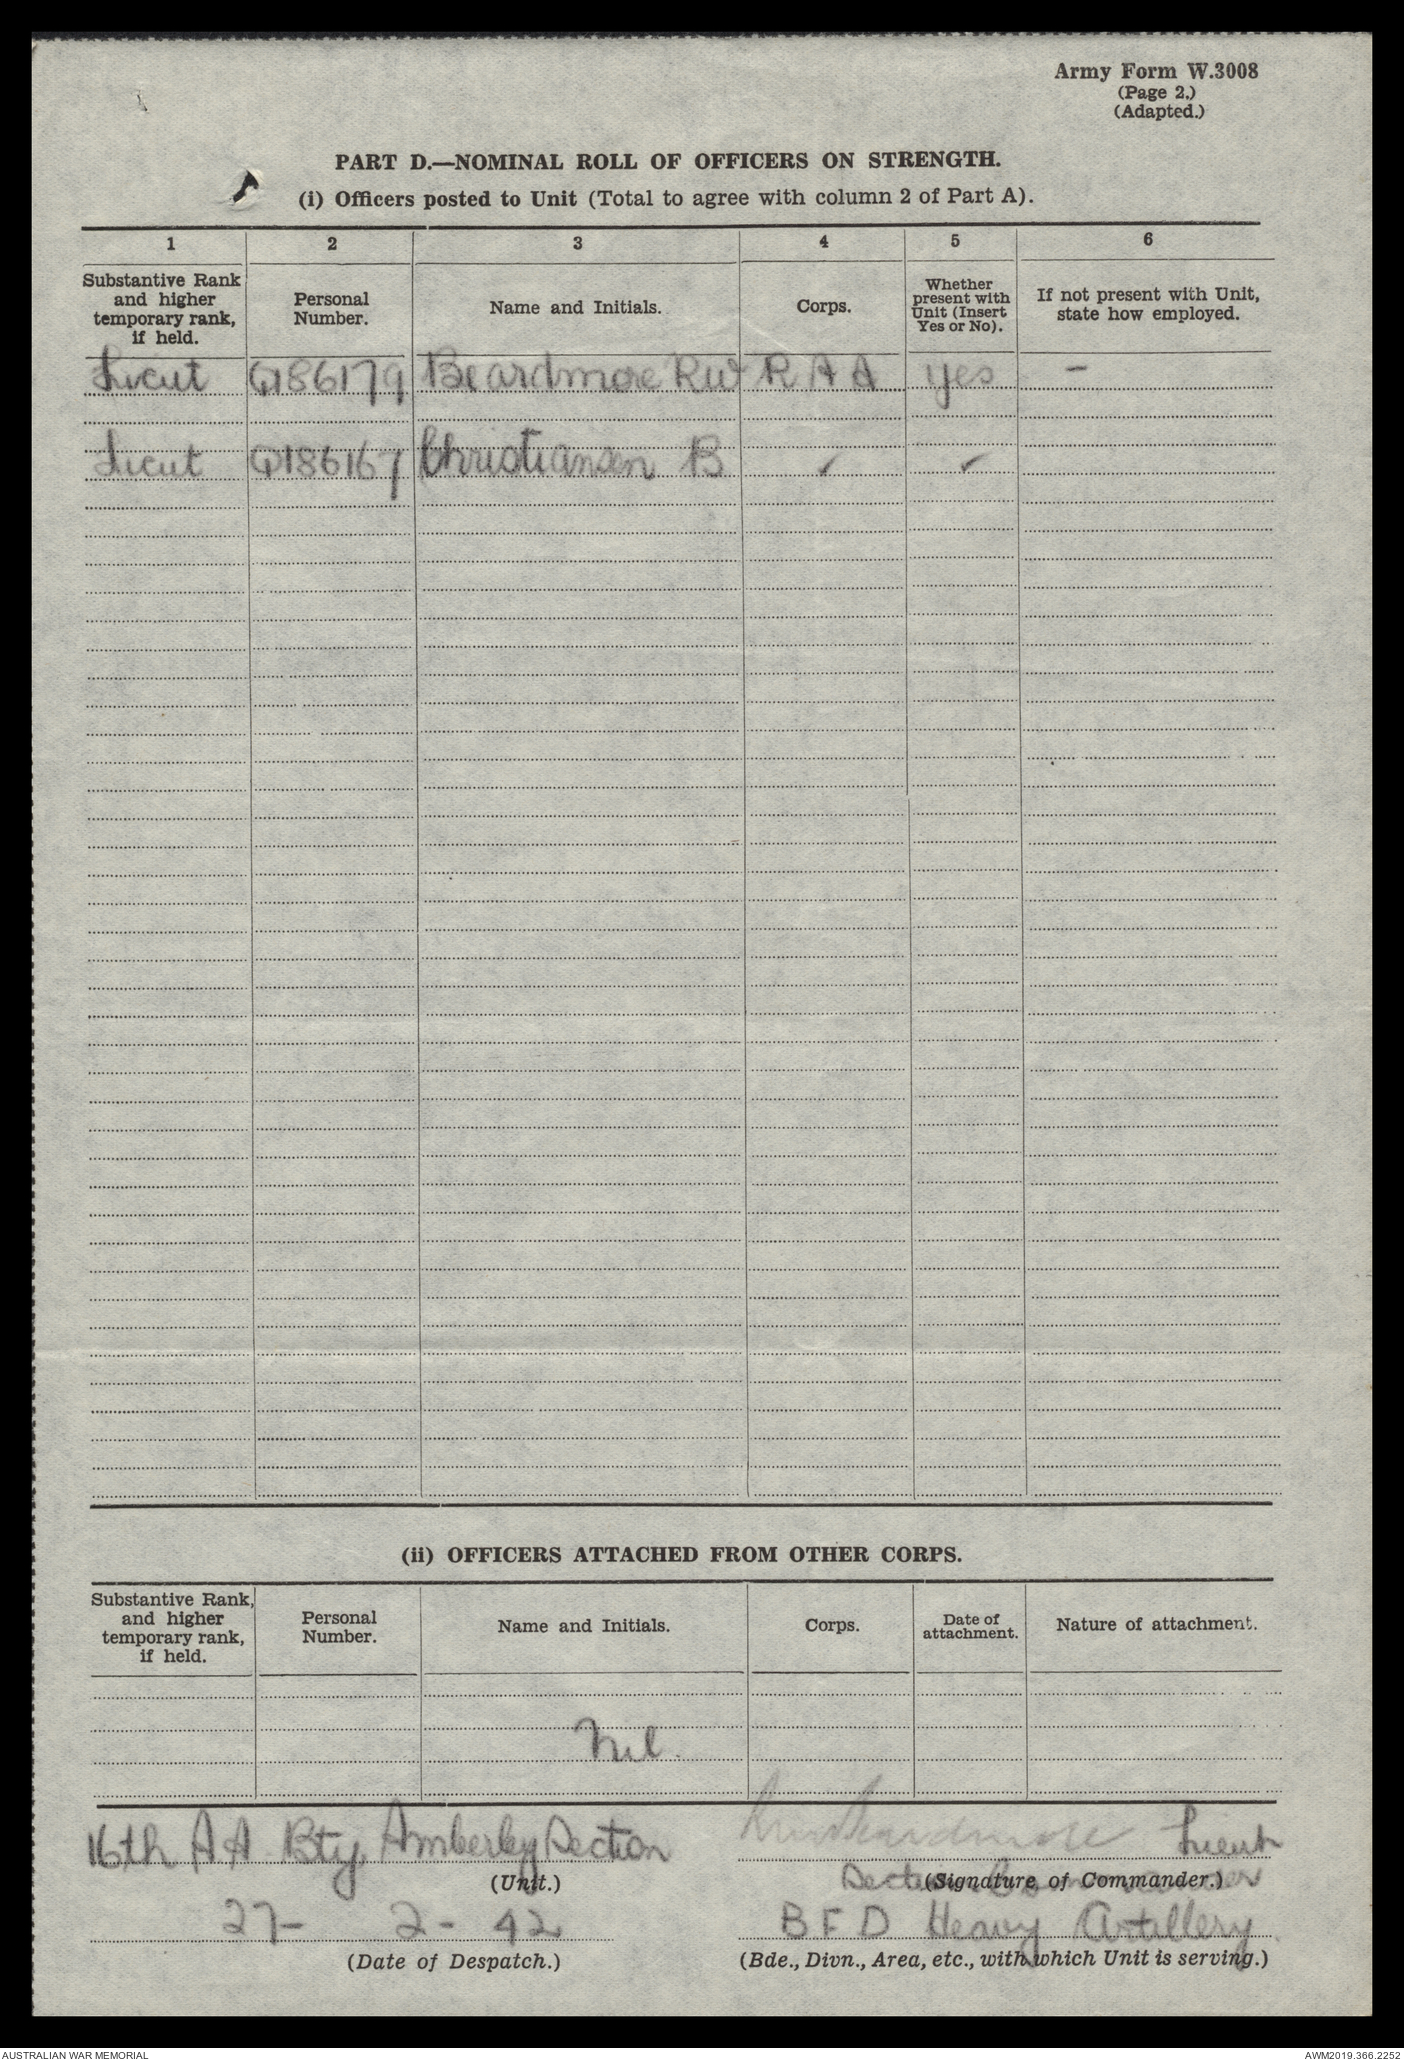 Army Form W.3008
(Page 2.)
(Adapted.)
PART D.—NOMINAL ROLL OF OFFICERS ON STRENGTH.
(i) Officers posted to Unit (Total to agree with column 2 of Part A).
1 2 3 4 5 6
Substantive Rank and higher temporary rank, if held.
Personal Number.
Name and Initials.
Corps.
Whether present with Unit (Insert Yes or No).
If not present with Unit, state how employed.
Lieut Q186179 Beardmore RW R A A yes -
Lieut Q186167 Christiansen B ✓ ✓
(ii) OFFICERS ATTACHED FROM OTHER CORPS.
Substantive Rank, and higher temporary rank, if held.
Personal Number.
Name and Initials.
Corps.
Date of attachment.
Nature of attachment.
Nil.
16th AA Bty, Amberley Section
(Unit.)
27- 2- 42
(Date of Despatch.)
RW Beardmore Lieut
Section Commander
(Signature of Commander.)
B F D Heavy Artillery
(Bde., Divn., Area, etc., with which Unit is serving.)
AUSTRALIAN WAR MEMORIAL
AWM2019.366.2252